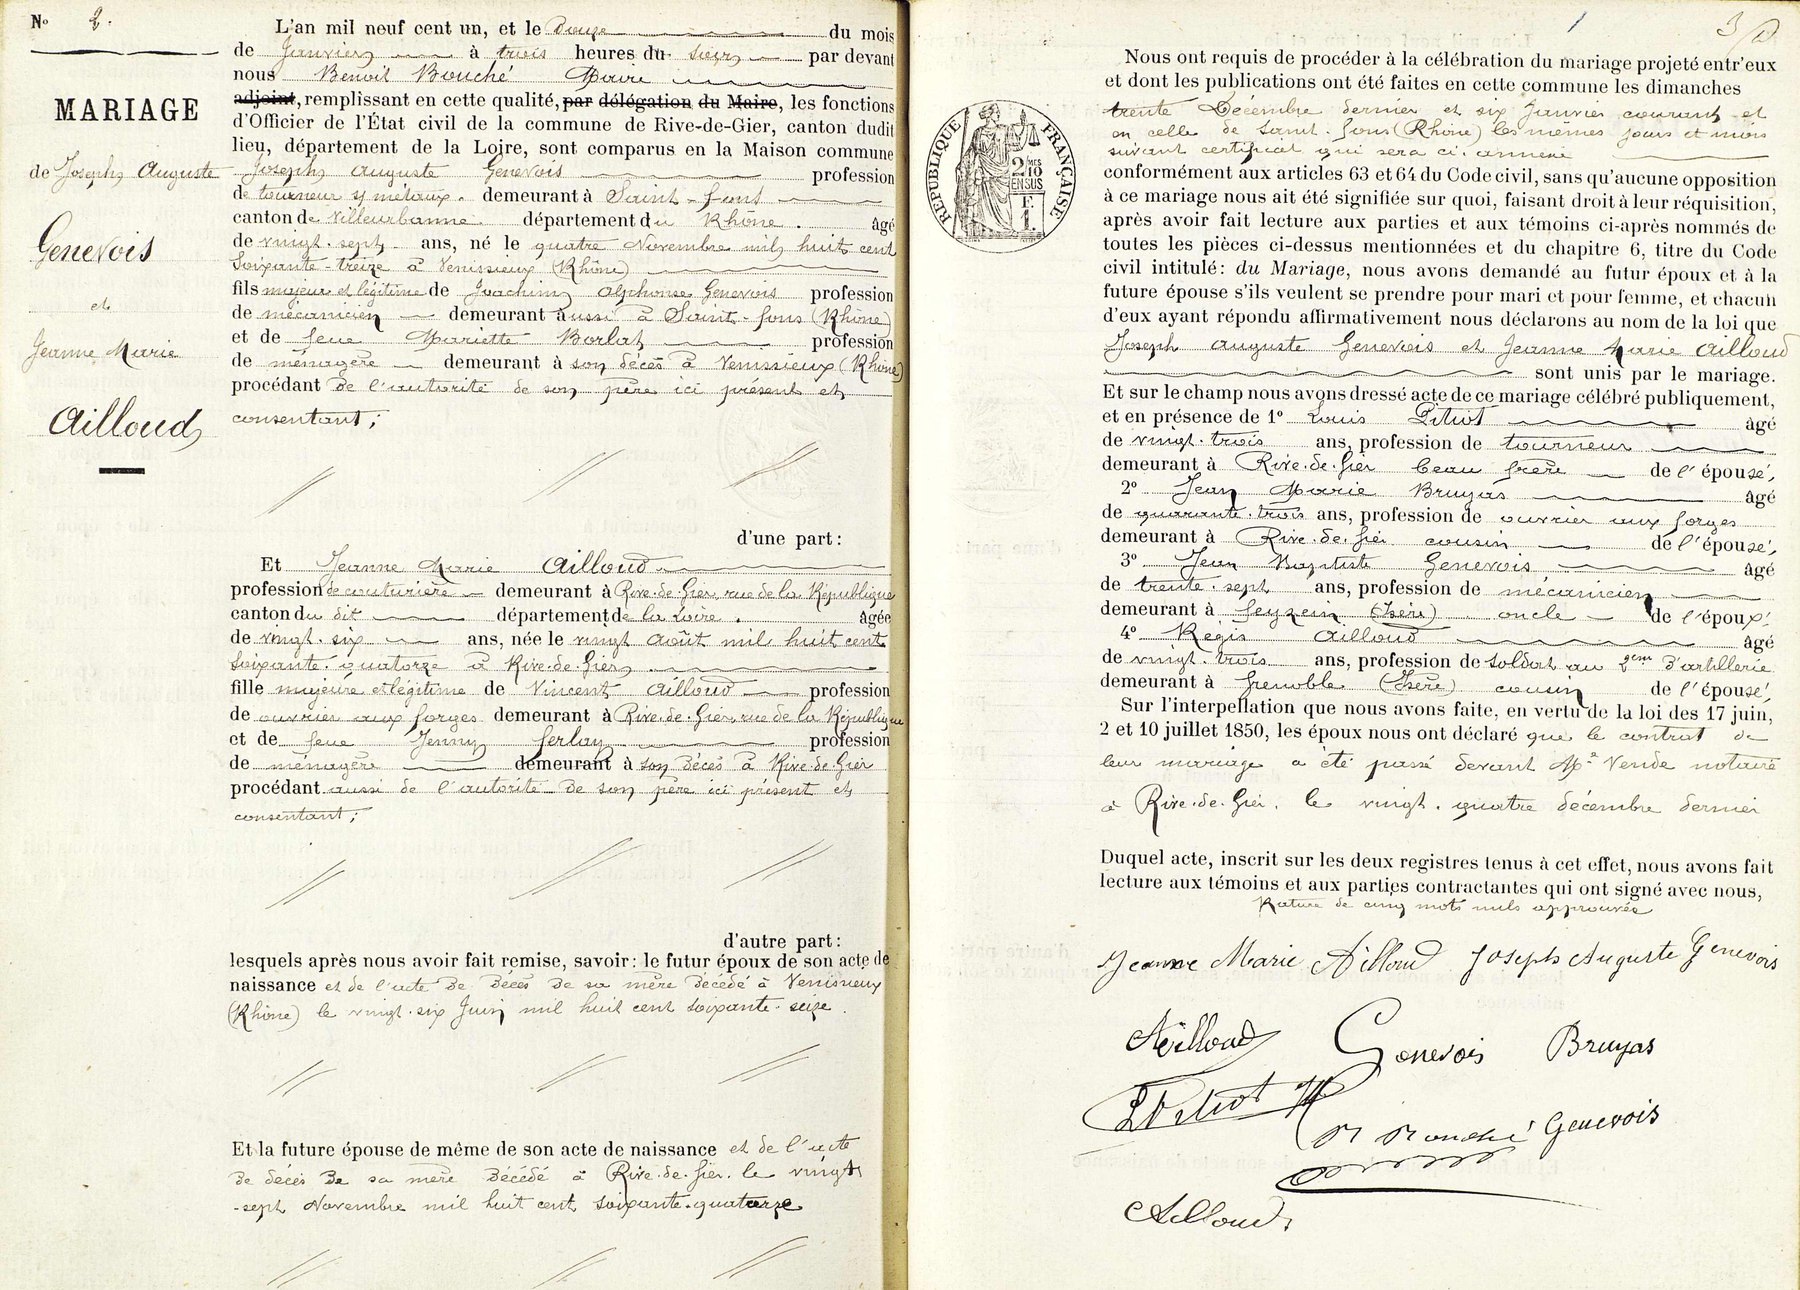 No 2.
MARIAGE
de Joseph Auguste
Genevois
et
Jeanne Marie
Ailloud
L'an mil neuf cent un, et le Douze du mois
de Janvier à trois heures du soir par devant
nous Benoit Bouché Maire
adjoint, remplissant en cette qualité, par délégation du Maire, les fonctions
d'Officier de l'État civil de la commune de Rive-de-Gier, canton dudit
lieu, département de la Loire, sont comparus en la Maison commune
Joseph Auguste Genevois profession
de tourneur s/ métaux. demeurant à Saint-fons
canton de Villeurbanne département du Rhône. âgé
de vingt-sept ans, né le quatre Novembre mil huit cent
soixante-treize à Venissieux (Rhône)
fils majeur et légitime de Joachim Alphonse Genevois profession
de mécanicien demeurant aussi à Saint-fons (Rhône)
et de feue Mariette Borlat profession
de ménagère demeurant à son décès à Venissieux (Rhône)
procédant de l'autorité de son père ici présent et
consentant;
d'une part:
Et Jeanne Marie Ailloud
profession de couturière demeurant à Rive-de-Gier, rue de la République
canton du dit département de la Loire. âgée
de vingt-six ans, née le vingt Août mil huit cent
soixante-quatorze à Rive-de-Gier
fille majeure et légitime de Vincent Ailloud profession
de ouvrier aux forges demeurant à Rive-de-Gier, rue de la République
et de feue Jenny Ferlay profession
de ménagère demeurant à son décès à Rive de Gier
procédant aussi de l'autorité de son père ici présent et
consentant;
d'autre part:
lesquels après nous avoir fait remise, savoir: le futur époux de son acte de
naissance et de l'acte de décès de sa mère décédé à Venissieux
(Rhône) le vingt-six Juin mil huit cent soixante-seize.
Et la future épouse de même de son acte de naissance et de l'acte
de décès de sa mère décédé à Rive-de-Gier, le vingt
-sept Novembre mil huit cent soixante-quatorze
3
Nous ont requis de procéder à la célébration du mariage projeté entr'eux
et dont les publications ont été faites en cette commune les dimanches
trente Décembre dernier et six Janvier courant et
en celle de Saint-fons (Rhône) les mêmes jours et mois
suivant certificat qui sera ci-annexé
RÉPUBLIQUE FRANÇAISE
2/10 MES
EN SUS
E
1.
conformément aux articles 63 et 64 du Code civil, sans qu'aucune opposition
à ce mariage nous ait été signifiée sur quoi, faisant droit à leur réquisition,
après avoir fait lecture aux parties et aux témoins ci-après nommés de
toutes les pièces ci-dessus mentionnées et du chapitre 6, titre du Code
civil intitulé: du Mariage, nous avons demandé au futur époux et à la
future épouse s'ils veulent se prendre pour mari et pour femme, et chacun
d'eux ayant répondu affirmativement nous déclarons au nom de la loi que
Joseph Auguste Genevois et Jeanne Marie Ailloud
sont unis par le mariage.
Et sur le champ nous avons dressé acte de ce mariage célébré publiquement,
et en présence de 1o Louis Pitiot âgé
de vingt-trois ans, profession de tourneur
demeurant à Rive-de-Gier beau frère de l'épouse,
2o Jean Marie Bruyas âgé
de quarante-trois ans, profession de ouvrier aux forges
demeurant à Rive-de-Gier cousin de l'épouse,
3o Jean Baptiste Genevois âgé
de trente-sept ans, profession de mécanicien
demeurant à Feyzein (Isère) oncle de l'époux.
4o Régis Ailloud âgé
de vingt-trois ans, profession de soldat au 2em d'artillerie
demeurant à Grenoble (Isère) cousin de l'épouse,
Sur l'interpellation que nous avons faite, en vertu de la loi des 17 juin,
2 et 10 juillet 1850, les époux nous ont déclaré que le contrat de
leur mariage a été passé devant Me Vende notaire
à Rive-de-Gier, le vingt-quatre décembre dernier
Duquel acte, inscrit sur les deux registres tenus à cet effet, nous avons fait
lecture aux témoins et aux parties contractantes qui ont signé avec nous,
Rature de cinq mots nuls approuvée
Jeanne Marie Ailloud Joseph Auguste Genevois
Ailloud Genevois Bruyas
L Pitiot
B Bouché Genevois
Ailloud